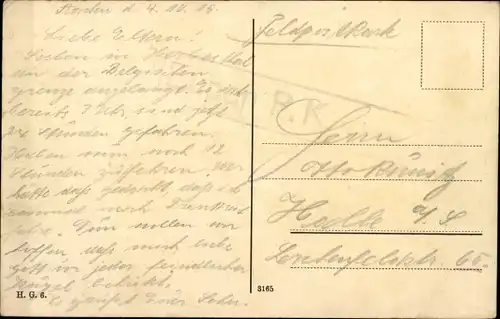 d. 4. 10. 15.
Liebe Eltern!
Schon in Herbesthal
an der Belgischen
grenze angelangt. Es ist
bereits 3 Uhr sind jetzt
24 Stunden gefahren.
Haben nun noch 12
Stunden zu fahren. Wer
hatte das gedacht das ich
einmal nach Frankreich
fahre. Nun wollen wir
hoffen, das mich
gott vor jeder feindlichen
Kugel behütet.
Es grüßt Euer Sohn
H. G. 6.
3165
Feldpostkarte
P.K
Herrn
Otto
Halle a/S
65.